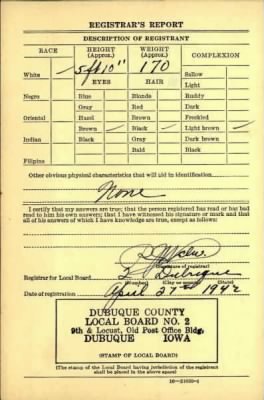 REGISTRAR'S REPORT
DESCRIPTION OF REGISTRANT
RACE HEIGHT (Approx.) WEIGHT (Approx.) COMPLEXION
White ✓ 5 ft 10" 170 Sallow
EYES HAIR Light
Negro Blue Blonde Ruddy
Gray Red Dark
Oriental Hazel Brown Freckled
Brown ✓ Black ✓ Light brown ✓
Indian Black Gray Dark brown
Bald Black
Filipino
Other obvious physical characteristics that will aid in identification
None
I certify that my answers are true; that the person registered has read or has had
read to him his own answers; that I have witnessed his signature or mark and that
all of his answers of which I have knowledge are true, except as follows:
(Signature of registrar)
Registrar for Local Board 2 Dubuque
(Number) (City or county)
Date of registration April 27th 1942
DUBUQUE COUNTY
LOCAL BOARD NO. 2
9th & Locust, Old Post Office Bldg.
DUBUQUE IOWA
(STAMP OF LOCAL BOARD)
(The stamp of the Local Board having jurisdiction of the registrant
shall be placed in the above space)